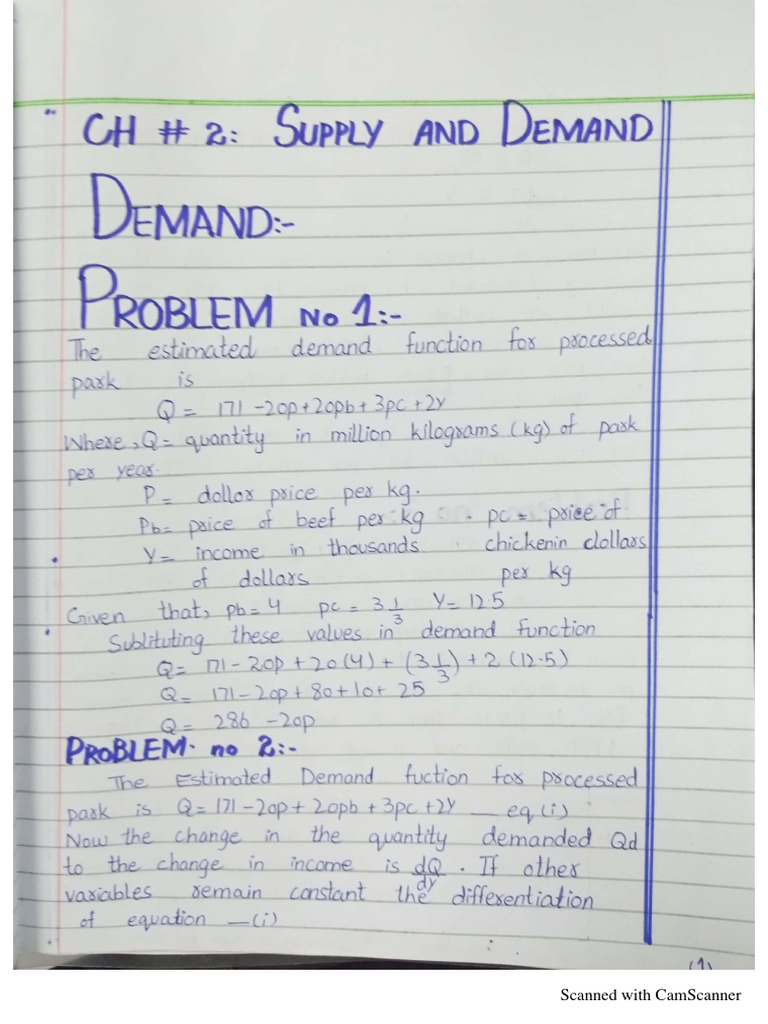 CH # 2: SUPPLY AND DEMAND
DEMAND:-
PROBLEM No 1:-
The estimated demand function for processed
park is
Q = 171 - 20p + 20pb + 3pc + 2y
Where, Q = quantity in million kilograms (kg) of park
per year.
P = dollar price per kg.
Pb = price of beef per kg . pc = price of
Y = income in thousands . chickenin dollars
of dollars per kg
Given that, pb = 4 pc = 3 1/3 Y = 12.5
Sublituting these values in demand function
Q = 171 - 20p + 20(4) + (3 1/3) + 2 (12.5)
Q = 171 - 20p + 80 + 10 + 25
Q = 286 - 20p
PROBLEM. no 2:-
The Estimated Demand fuction for processed
park is Q = 171 - 20p + 20pb + 3pc + 2Y _ eq (i)
Now the change in the quantity demanded Qd
to the change in income is dQ/dy . If other
variables remain constant the differentiation
of equation _(i)
(1)
Scanned with CamScanner